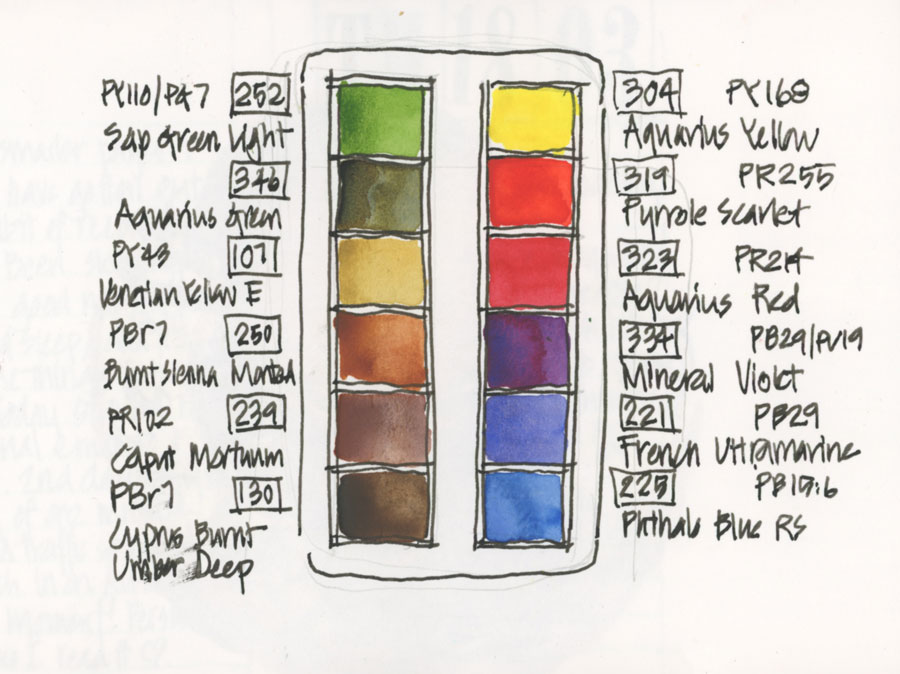 PY110/PG7 252
Sap Green Light
346
Aquarius Green
PY43 107
Venetian Yellow E
PBr7 250
Burnt Sienna
PR102 239
Caput Mortuum
PBr7 130
Cyprus Burnt
Umber Deep
304 PY168
Aquarius Yellow
319 PR255
Pyrrole Scarlet
323 PR214
Aquarius Red
334 PB29/PV19
Mineral Violet
221 PB29
French Ultramarine
225 PB15:6
Phthalo Blue RS